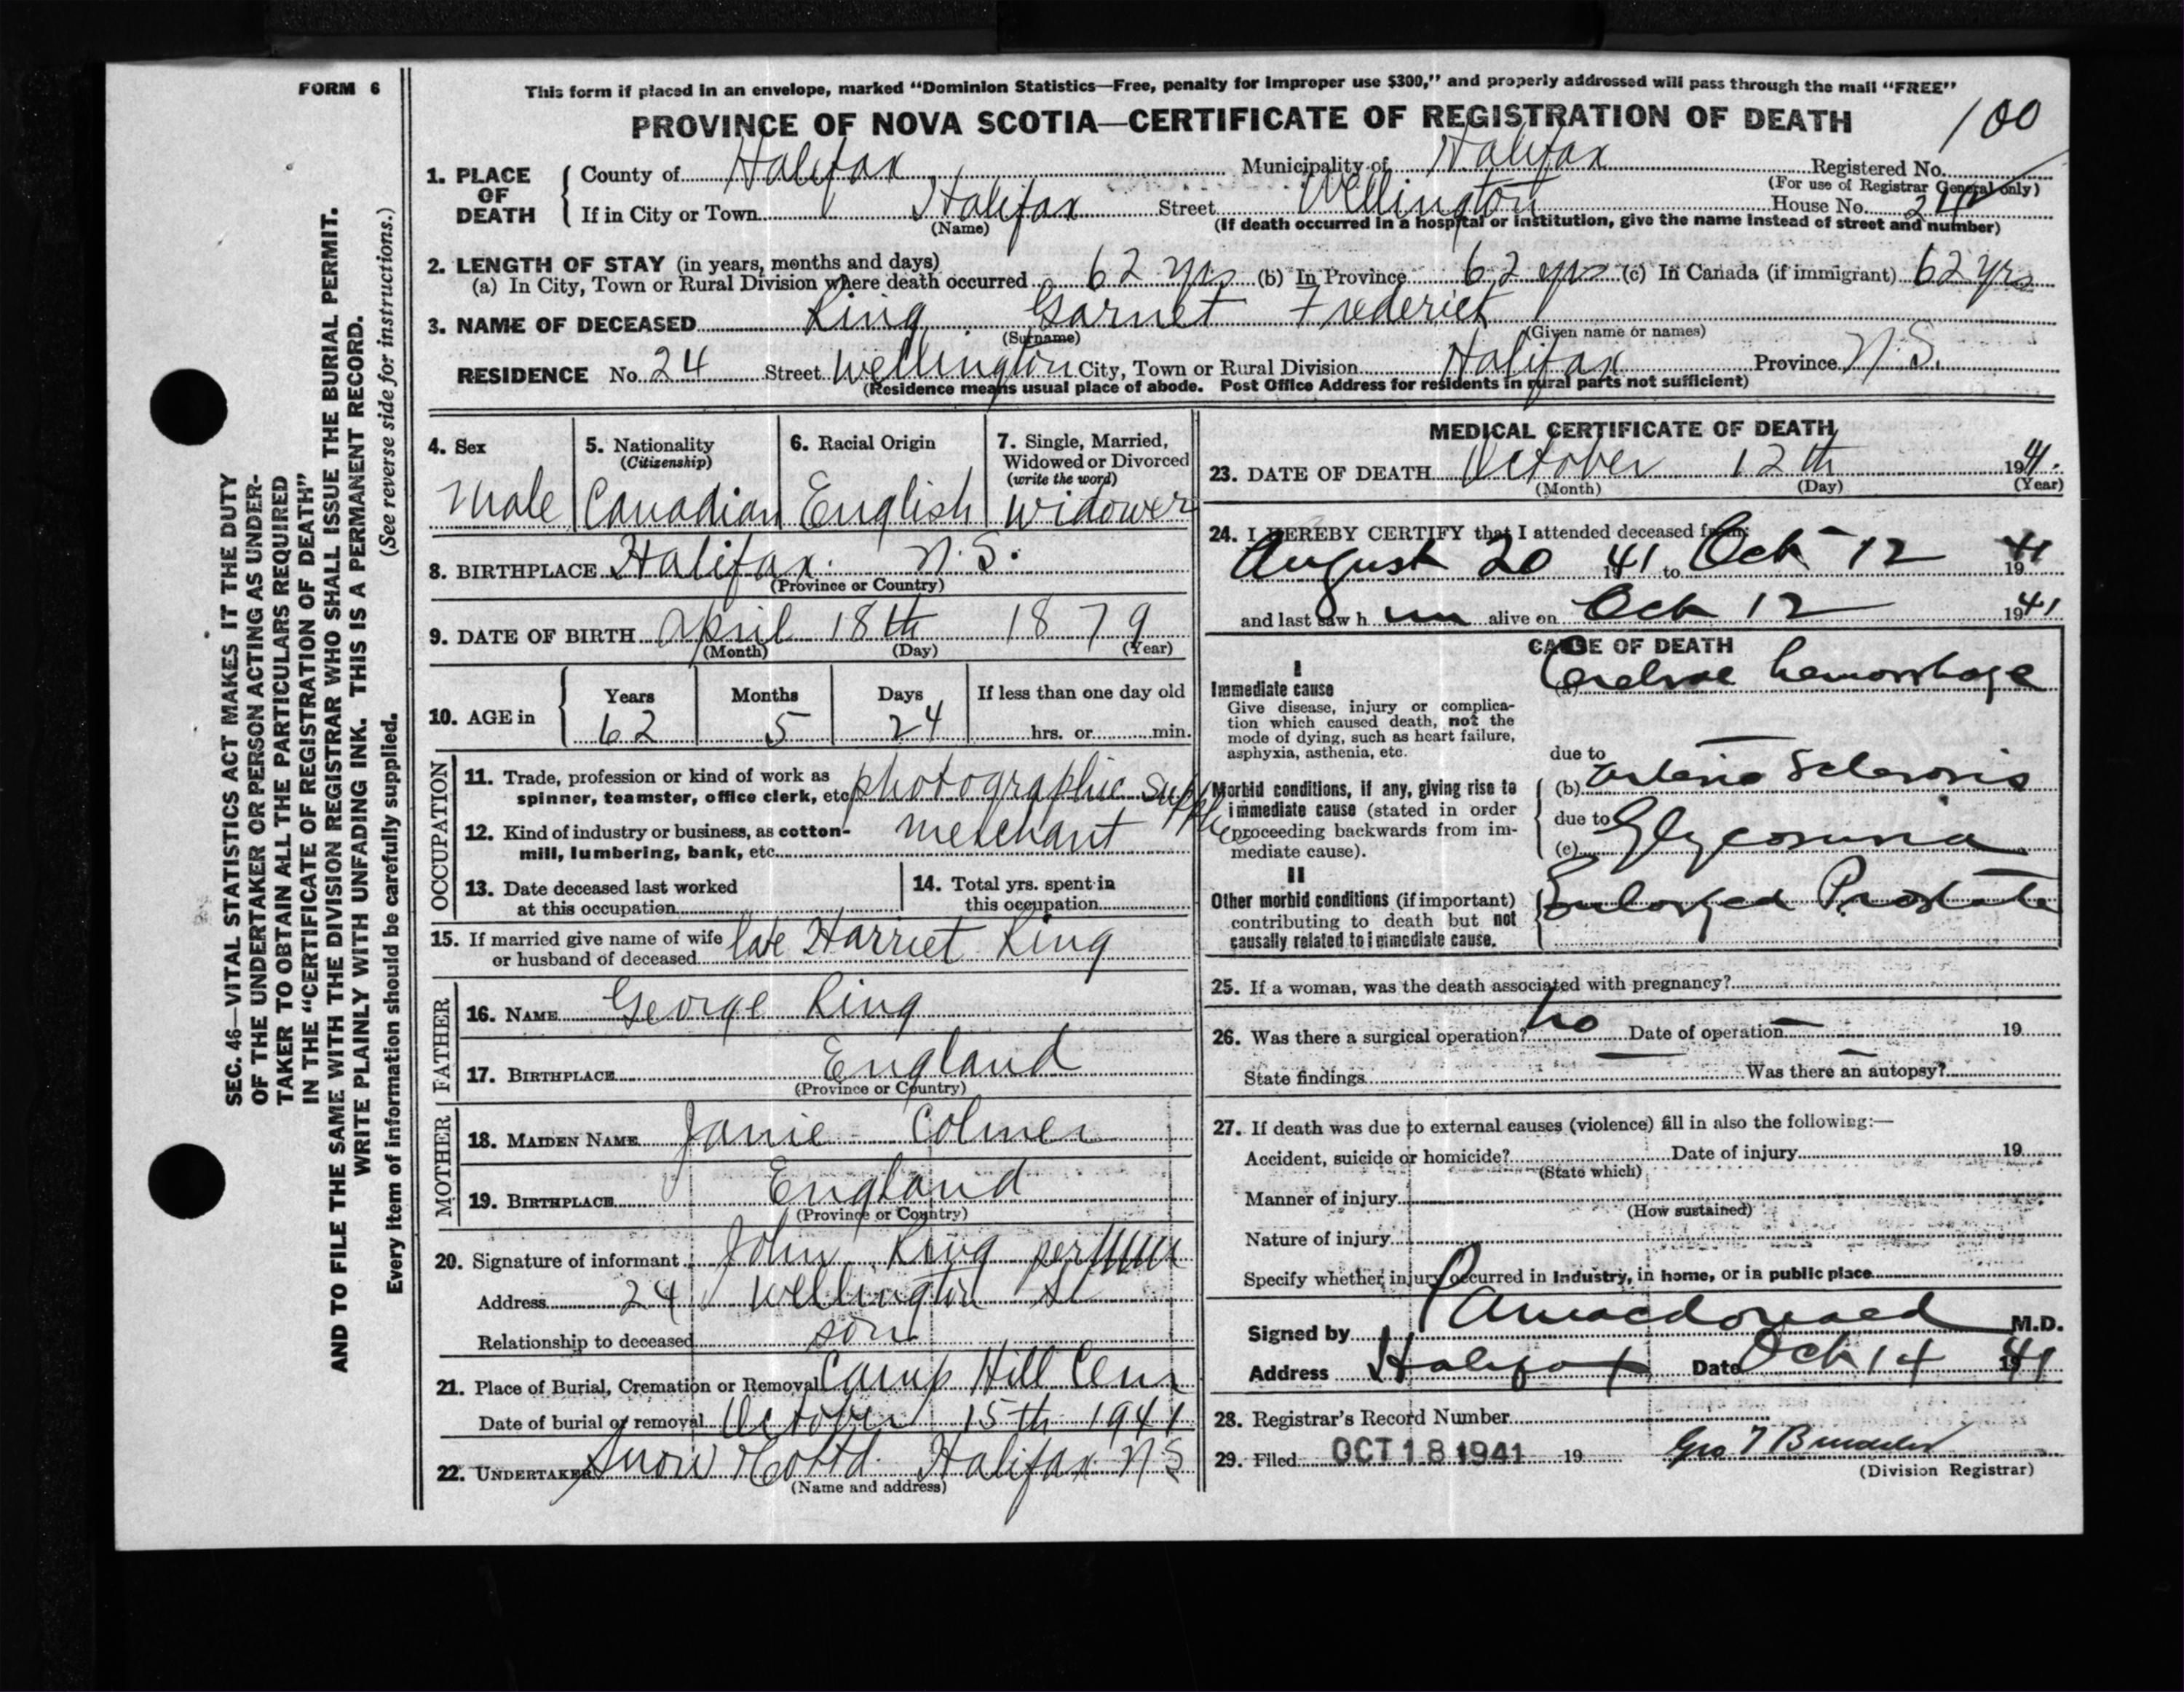 FORM 6
This form if placed in an envelope, marked "Dominion Statistics—Free, penalty for improper use $300," and properly addressed will pass through the mail "FREE"
PROVINCE OF NOVA SCOTIA—CERTIFICATE OF REGISTRATION OF DEATH
100
1. PLACE OF DEATH
County of Halifax Municipality of Halifax Registered No.
(For use of Registrar General only)
If in City or Town Halifax Street Wellington House No. 24
(Name) (If death occurred in a hospital or institution, give the name instead of street and number)
2. LENGTH OF STAY (in years, months and days)
(a) In City, Town or Rural Division where death occurred 62 yrs (b) In Province 62 yrs (c) In Canada (if immigrant) 62 yrs
3. NAME OF DECEASED King Garnet Frederick
(Surname) (Given name or names)
RESIDENCE No. 24 Street Wellington City, Town or Rural Division Halifax Province N.S.
(Residence means usual place of abode. Post Office Address for residents in rural parts not sufficient)
4. Sex
Male
5. Nationality
(Citizenship)
Canadian
6. Racial Origin
English
7. Single, Married,
Widowed or Divorced
(write the word)
widower
8. BIRTHPLACE Halifax. N.S.
(Province or Country)
9. DATE OF BIRTH April 18th 1879
(Month) (Day) (Year)
10. AGE in
Years Months Days If less than one day old
62 5 24 hrs. or min.
OCCUPATION
11. Trade, profession or kind of work as
spinner, teamster, office clerk, etc. photographic supplie
12. Kind of industry or business, as cotton-
mill, lumbering, bank, etc. merchant
13. Date deceased last worked
at this occupation
14. Total yrs. spent in
this occupation
15. If married give name of wife
or husband of deceased late Harriet King
FATHER
16. NAME George King
17. BIRTHPLACE England
(Province or Country)
MOTHER
18. MAIDEN NAME Janie Colmer
19. BIRTHPLACE England
(Province or Country)
20. Signature of informant John King per
Address 24 Wellington St
Relationship to deceased son
21. Place of Burial, Cremation or Removal Camp Hill Cem
Date of burial or removal October 15th 1941
22. UNDERTAKER Snow & Co Ltd. Halifax N.S
(Name and address)
MEDICAL CERTIFICATE OF DEATH
23. DATE OF DEATH October 12th 1941.
(Month) (Day) (Year)
24. I HEREBY CERTIFY that I attended deceased from:
August 20 1941 to Oct 12 1941
and last saw h im alive on Oct 12 1941
CAUSE OF DEATH
I
Immediate cause
Give disease, injury or complica-
tion which caused death, not the
mode of dying, such as heart failure,
asphyxia, asthenia, etc.
(a) Cerebral hemorrhage
due to
Morbid conditions, if any, giving rise to
immediate cause (stated in order
proceeding backwards from im-
mediate cause).
(b) arterio Sclerosis
due to
(c) Glycosuria
II
Other morbid conditions (if important)
contributing to death but not
causally related to immediate cause.
Enlarged Prostate
25. If a woman, was the death associated with pregnancy?
26. Was there a surgical operation? no Date of operation — 19
State findings — Was there an autopsy? —
27. If death was due to external causes (violence) fill in also the following:—
Accident, suicide or homicide? Date of injury 19
(State which)
Manner of injury
(How sustained)
Nature of injury
Specify whether injury occurred in industry, in home, or in public place
Signed by P A Macdonald M.D.
Address Halifax Date Oct 14 1941
28. Registrar's Record Number
29. Filed OCT 18 1941 19
(Division Registrar)
SEC. 46—VITAL STATISTICS ACT MAKES IT THE DUTY
OF THE UNDERTAKER OR PERSON ACTING AS UNDER-
TAKER TO OBTAIN ALL THE PARTICULARS REQUIRED
IN THE "CERTIFICATE OF REGISTRATION OF DEATH"
AND TO FILE THE SAME WITH THE DIVISION REGISTRAR WHO SHALL ISSUE THE BURIAL PERMIT.
WRITE PLAINLY WITH UNFADING INK. THIS IS A PERMANENT RECORD.
(See reverse side for instructions.)
Every item of information should be carefully supplied.